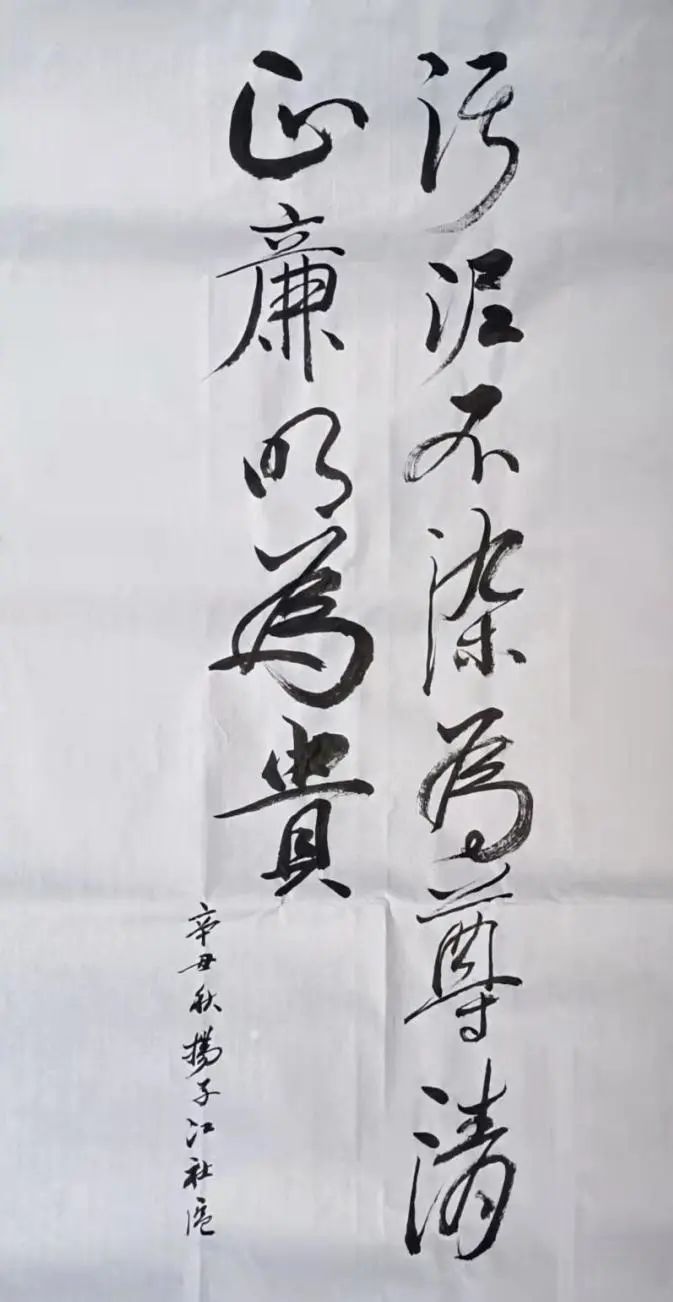 污泥不染為尊清
正廉明為貴
辛丑秋揚子江社區